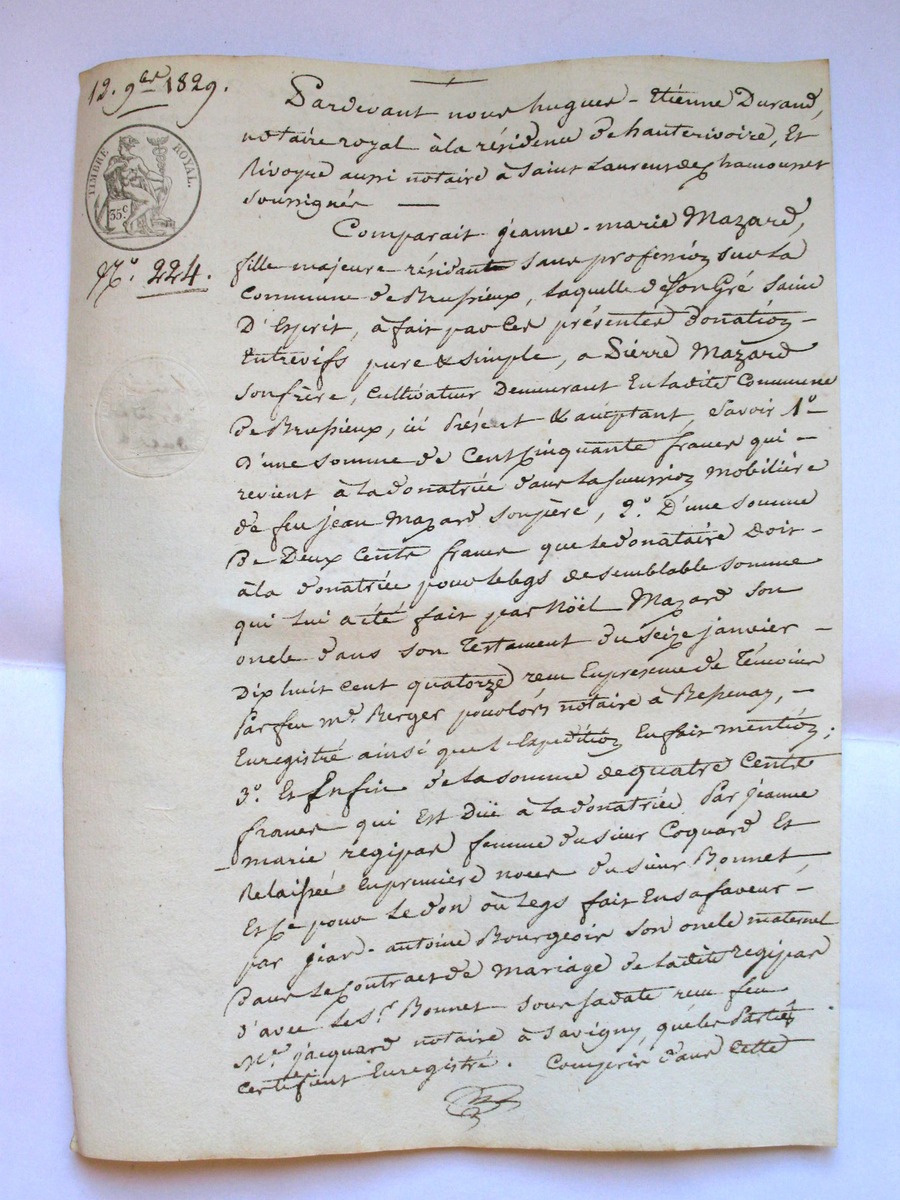 12. 9bre 1829.
TIMBRE ROYAL.
35c
N.° 224.
Pardevant nous hugues-Etienne Durand,
notaire royal à la résidence de hauterivoire, Et
Rivoyre aussi notaire à Saint Laurent de Chamousset
soussignés —
Comparait jeanne-marie Mazard,
fille majeure résidante sans profession sur la
Commune de Brussieux, laquelle de son Gré Saine
D'Esprit, à fait par Ces présentes donation
Entrevifs pure & simple, a Pierre Mazard
son frère, Cultivateur Demeurant En la dite Commune
de Brussieux, ici Présent & acceptant, Savoir 1°
D'une somme de Cent Cinquante francs qui —
revient à la donatrice dans la succession Mobilière
de feu jean Mazard son père, 2.° D'une somme
De Deux Cents francs que le donataire doit —
à la donatrice pour le legs de semblable somme
qui lui a été fait par Noël Mazard son
oncle dans son Testament du seize janvier —
Dix huit cent quatorze reçu En présence de Témoins
Par feu me. Berger pour lors notaire à Bessenay, —
Enregistré ainsi que l'Expédition En fait mention;
3.° Et Enfin de la somme de quatre Cents
francs qui Est Düe à la donatrice Par jeanne
marie régipas femme du sieur Coquard Et
Relaissée En premiere noces du sieur Bonnet,
Et Ce pour le don où legs fait En sa faveur —
par jean-antoine Bourgeois son oncle maternel
Dans le Contract de Mariage de la dite regipas
d'avec le Sr. Bonnet sous sa date reçu feu
Me. jacquard notaire à Savigny, que les Parties
certifient Enregistré. Compris dans Cette